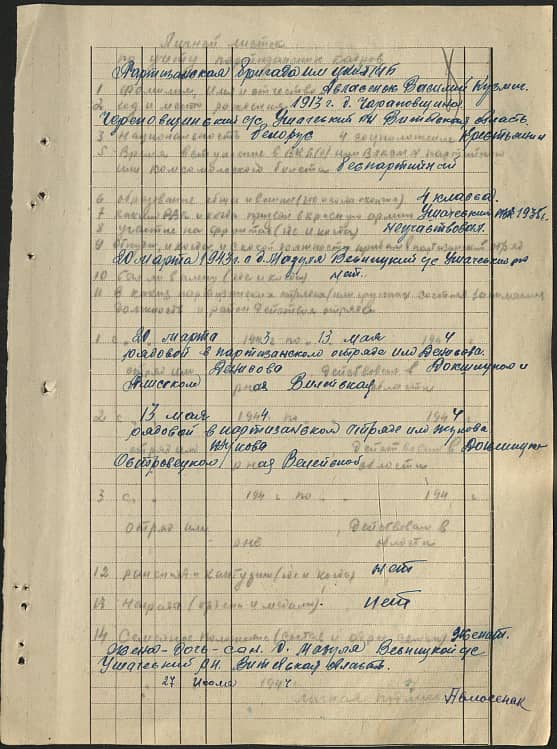 Личной листок
по учету партизанских кадров
Партизанская бригада им ЦК КП/б/Б
1 Фамилия, имя и отчество Авласенок Василий Кузмич.
2 год и место рождения 1913 г. д. Чарапощина
Череповщинский с/с Ушачский рн Витебская область.
3 Национальность белорус 4 соцположение Крестьянин
5 Время вступление в ВКП(б) или ВЛКСМ партийного
или комсомольского билета беспартийный
6 образование общее и военное 4 класса.
7 каким РВК и когда призван в красную армию Ушачский 1936г
8 участие на фронтах (где и когда) неучаствовал.
9 Откуда, и когда и с какой должности прибыл в партизанский отряд
20 марта 1943 г. с д. Мазуля Веницкий с/с Ушачский рн
10 был ли в плену (где и когда) нет.
11 В каких партизанских отрядах или группах состоял занимаемая
должность и район действия отряда
1 с 20 марта 1943 г по 13 мая 1944 г.
рядовой в партизанского отряде им Денисова.
отряд им Денисова Действовал в Докшицком и
Плисском р-не Вилейская области
2 с 13 мая 1944. по 1944
рядовой в партизанском отряде им Жукова
отряд им Жукова Действовал в Докшицко
р-не Вилейской области
3 с 194 г по 194 г.
отряд им Действовал в
р-не области
12 ранения и контузии (где и когда) нет
13 Награда (ордена и медали). нет
14 Семейное положение (состав и адрес семьи) Женат.
Жена-дочь-сын. д. Мазуля Веницкой с/с
Ушачский рн. Витебская область.
27 Июля 1944 г.
личная подпись Авласенак